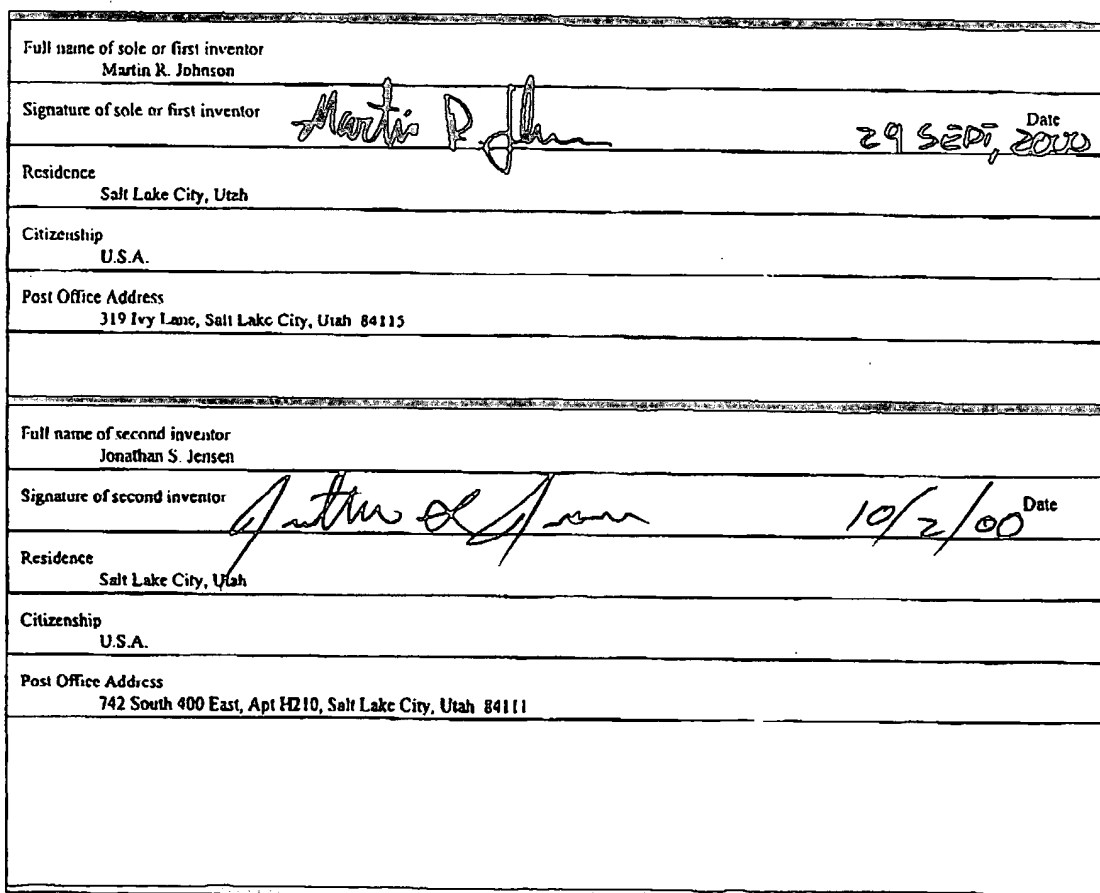 Full name of sole or first inventor
Martin R. Johnson
Signature of sole or first inventor Martin R. Date
29 SEPT, 2000
Residence
Salt Lake City, Utah
Citizenship
U.S.A.
Post Office Address
319 Ivy Lane, Salt Lake City, Utah 84115
Full name of second inventor
Jonathan S. Jensen
Signature of second inventor 10/2/00 Date
Residence
Salt Lake City, Utah
Citizenship
U.S.A.
Post Office Address
742 South 400 East, Apt H210, Salt Lake City, Utah 84111